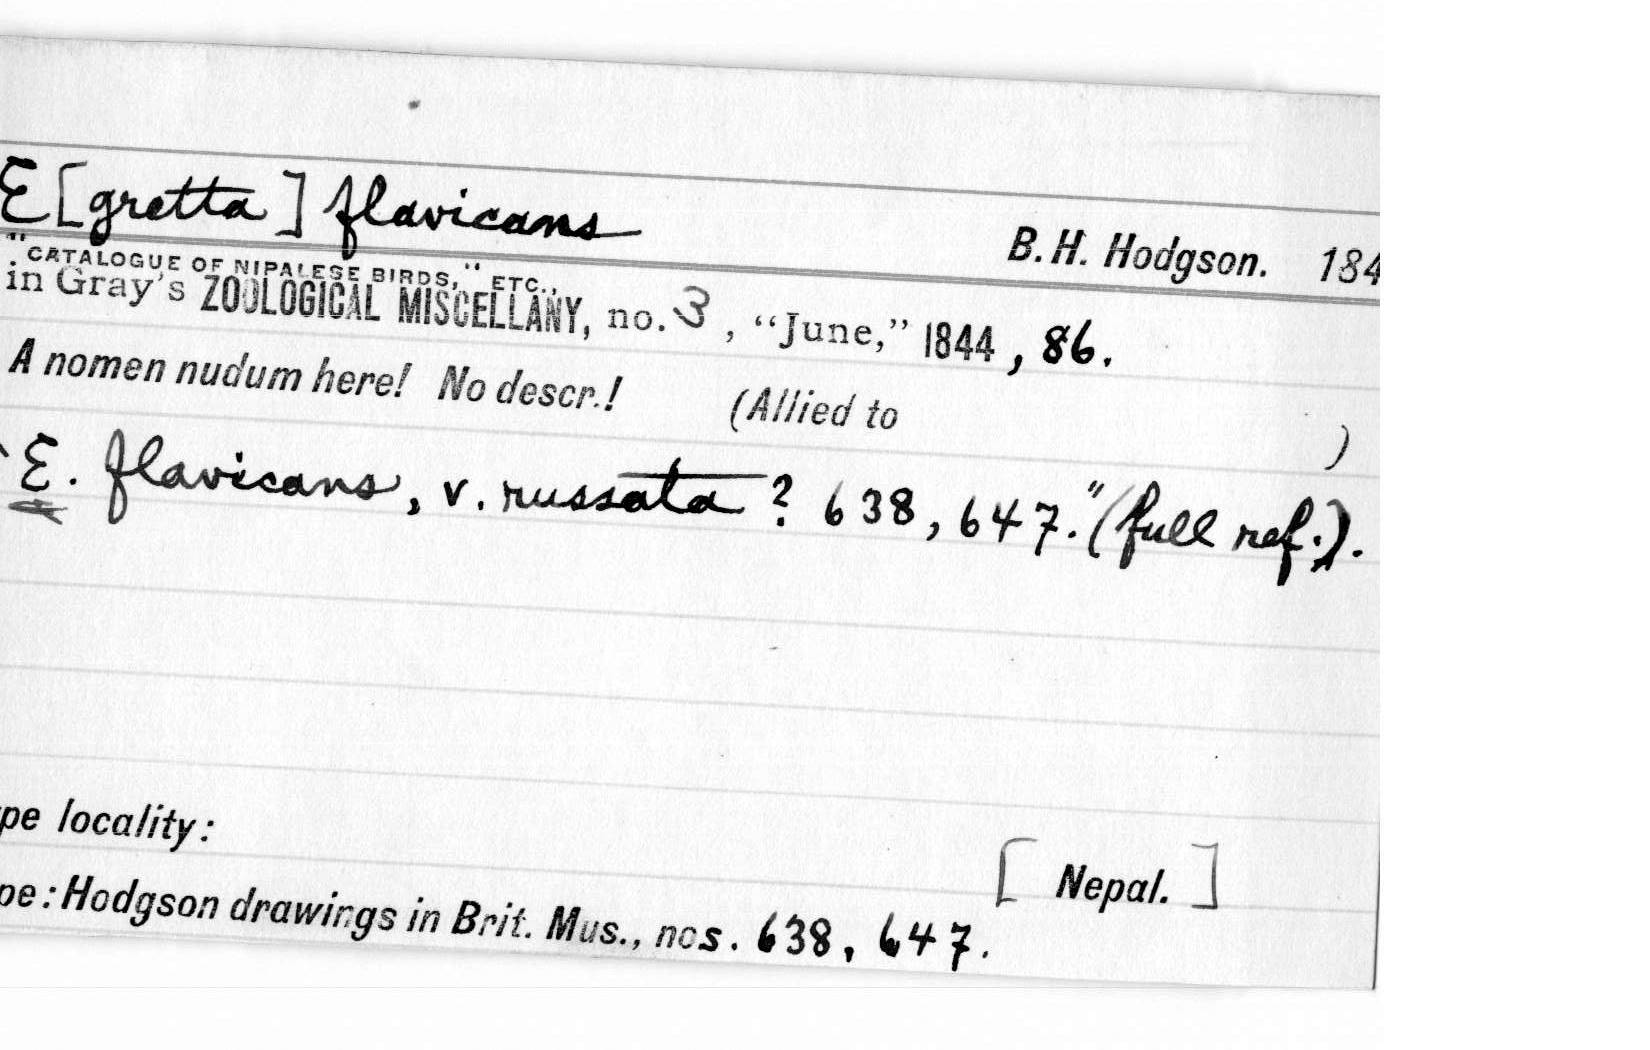 E[gretta] flavicans
B. H. Hodgson. 184
"CATALOGUE OF NIPALESE BIRDS," ETC.,
in Gray's ZOOLOGICAL MISCELLANY, no. 3, "June," 1844, 86.
A nomen nudum here! No descr.! (Allied to )
"E. flavicans, v. russata? 638, 647." (full ref.).
pe locality: [Nepal.]
pe: Hodgson drawings in Brit. Mus., nos. 638, 647.